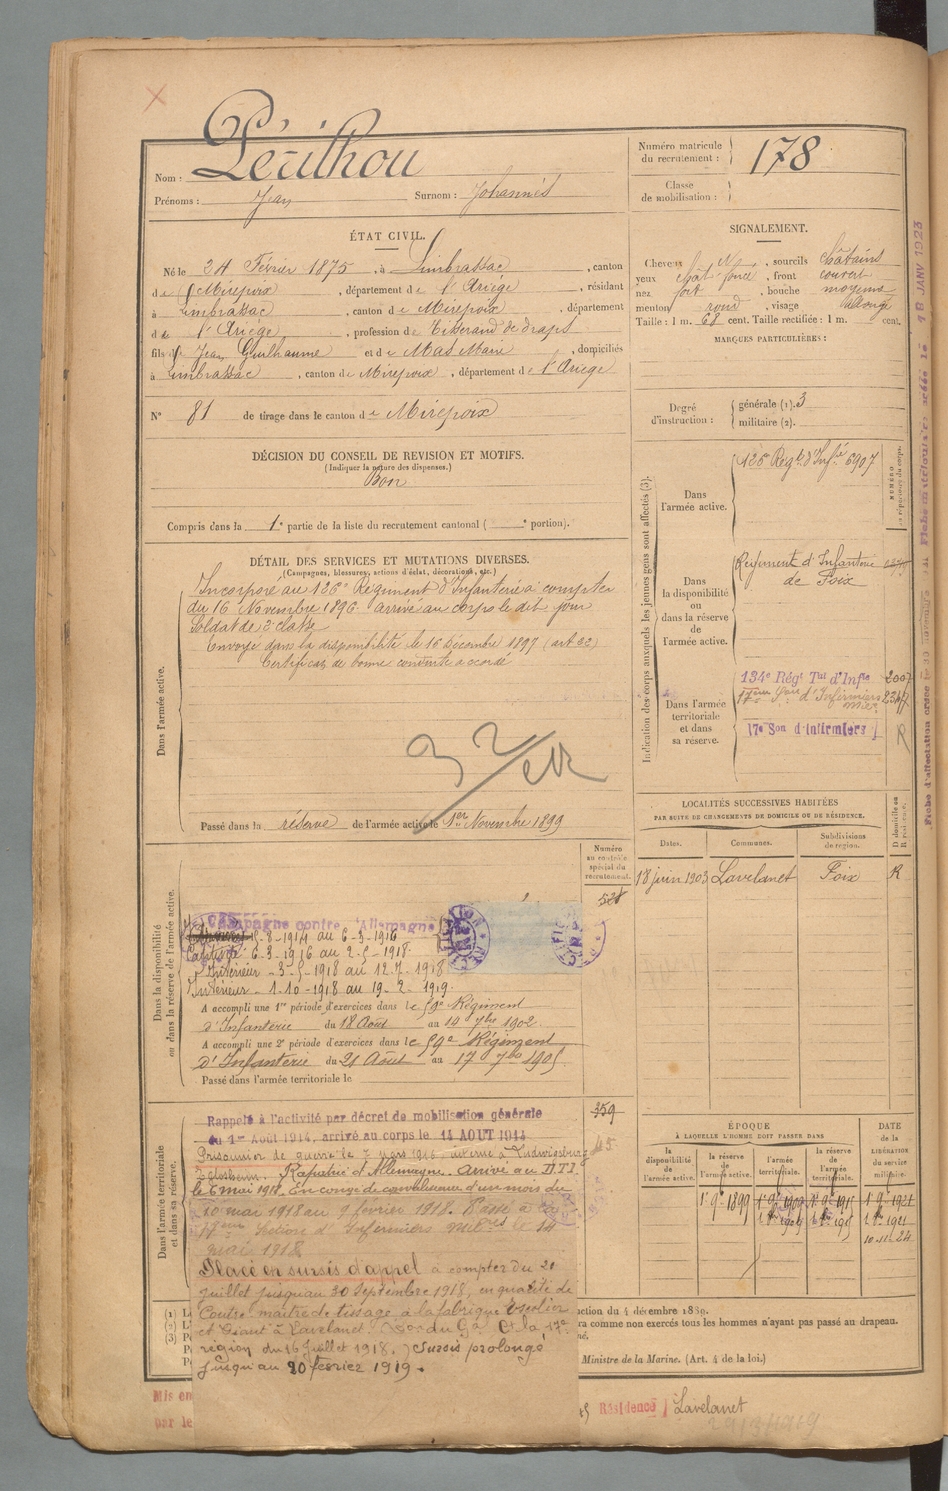 Nom : Pécilhou
Prénoms : Jean Surnom : Johannès
Numéro matricule du recrutement : 178
Classe de mobilisation :
ÉTAT CIVIL.
Né le 24 Février 1875, à Limbrassac, canton
de Mirepoix, département de l'Ariège, résidant
à Limbrassac, canton de Mirepoix, département
de l'Ariège, profession de Tisserand de draps
fils de Jean Guilhaume et de Mas Marie, domiciliés
à Limbrassac, canton de Mirepoix, département de l'Ariège
N° 81 de tirage dans le canton de Mirepoix
SIGNALEMENT.
Cheveux N, sourcils châtains
yeux chat. foncé, front couvert
nez fort, bouche moyenne
menton rond, visage allongé
Taille : 1 m. 68 cent. Taille rectifiée : 1 m. cent.
MARQUES PARTICULIÈRES :
Degré d'instruction : générale (1). 3
militaire (2).
DÉCISION DU CONSEIL DE REVISION ET MOTIFS.
(Indiquer la nature des dispenses.)
Bon
Compris dans la 1e partie de la liste du recrutement cantonal ( e portion).
DÉTAIL DES SERVICES ET MUTATIONS DIVERSES.
(Campagnes, blessures, actions d'éclat, décorations, etc.)
Dans l'armée active.
Incorporé au 126e Régiment d'Infanterie à compter
du 16 Novembre 1896 arrivé au corps le dit jour
Soldat de 2e classe
Envoyé dans la disponibilité le 16 Décembre 1897 (art 22)
Certificat de bonne conduite accordé
32
Passé dans la réserve de l'armée active le 1er Novembre 1899
Indication des corps auxquels les jeunes gens sont affectés (3).
NUMÉRO
Dans l'armée active.
126e Régt. d'Infie 6907
Dans la disponibilité ou dans la réserve de l'armée active.
Régiment d'Infanterie
de Foix
Dans l'armée territoriale et dans sa réserve.
134e Régt Tal d'Infie 2007
17eme d'Infirmiers
17e Son d'infirmiers R
LOCALITÉS SUCCESSIVES HABITÉES
PAR SUITE DE CHANGEMENTS DE DOMICILE OU DE RÉSIDENCE.
Dates. Communes. Subdivisions de région.
18 juin 1903 Lavelanet Foix R
Numéro au contrôle spécial du recrutement.
Dans la disponibilité ou dans la réserve de l'armée active.
Campagne contre l'Allemagne
-8-1914 au 6-3-1916
Captivité 6-3-1916 au 2-5-1918
Intérieur -3-5-1918 au 12-7-1918
Intérieur -1-10-1918 au 19-2-1919
A accompli une 1re période d'exercices dans le 59e Régiment
d'Infanterie du 18 Août au 14 7bre 1902
A accompli une 2e période d'exercices dans le 59e Régiment
d'Infanterie du 21 Août au 17 7bre 1905
Passé dans l'armée territoriale le
359
Dans l'armée territoriale et dans sa réserve.
Rappelé à l'activité par décret de mobilisation générale
du 1er Août 1914, arrivé au corps le 14 AOUT 1914
Prisonnier de guerre le 7 mars 1916 interné à Ludwigsburg
Eglosheim. Rapatrié d'Allemagne. Arrivé au
le 6 mai 1918. En congé de convalescence d'un mois du
10 mai 1918 au 9 1918. Passé à la
17eme Section d'Infirmiers Mitres le 14
mai 1918
Placé en sursis d'appel à compter du 21
juillet jusqu'au 30 Septembre 1918, en qualité de
Contre-maître de tissage à la fabrique
et à Lavelanet. du Gal Ct la 17e
région du 16 Juillet 1918.) Sursis prolongé
jusqu'au 20 février 1919.
ÉPOQUE
À LAQUELLE L'HOMME DOIT PASSER DANS
DATE de la LIBÉRATION du service militaire.
la disponibilité de l'armée active.
la réserve de l'armée active.
l'armée territoriale.
la réserve de l'armée territoriale.
1e 9e 1899
10-11-24
ction du 4 décembre 1889.
ra comme non exercés tous les hommes n'ayant pas passé au drapeau.
Ministre de la Marine. (Art. 4 de la loi.)
Mis en
par le
Résidence Lavelanet
18 JANV 1923